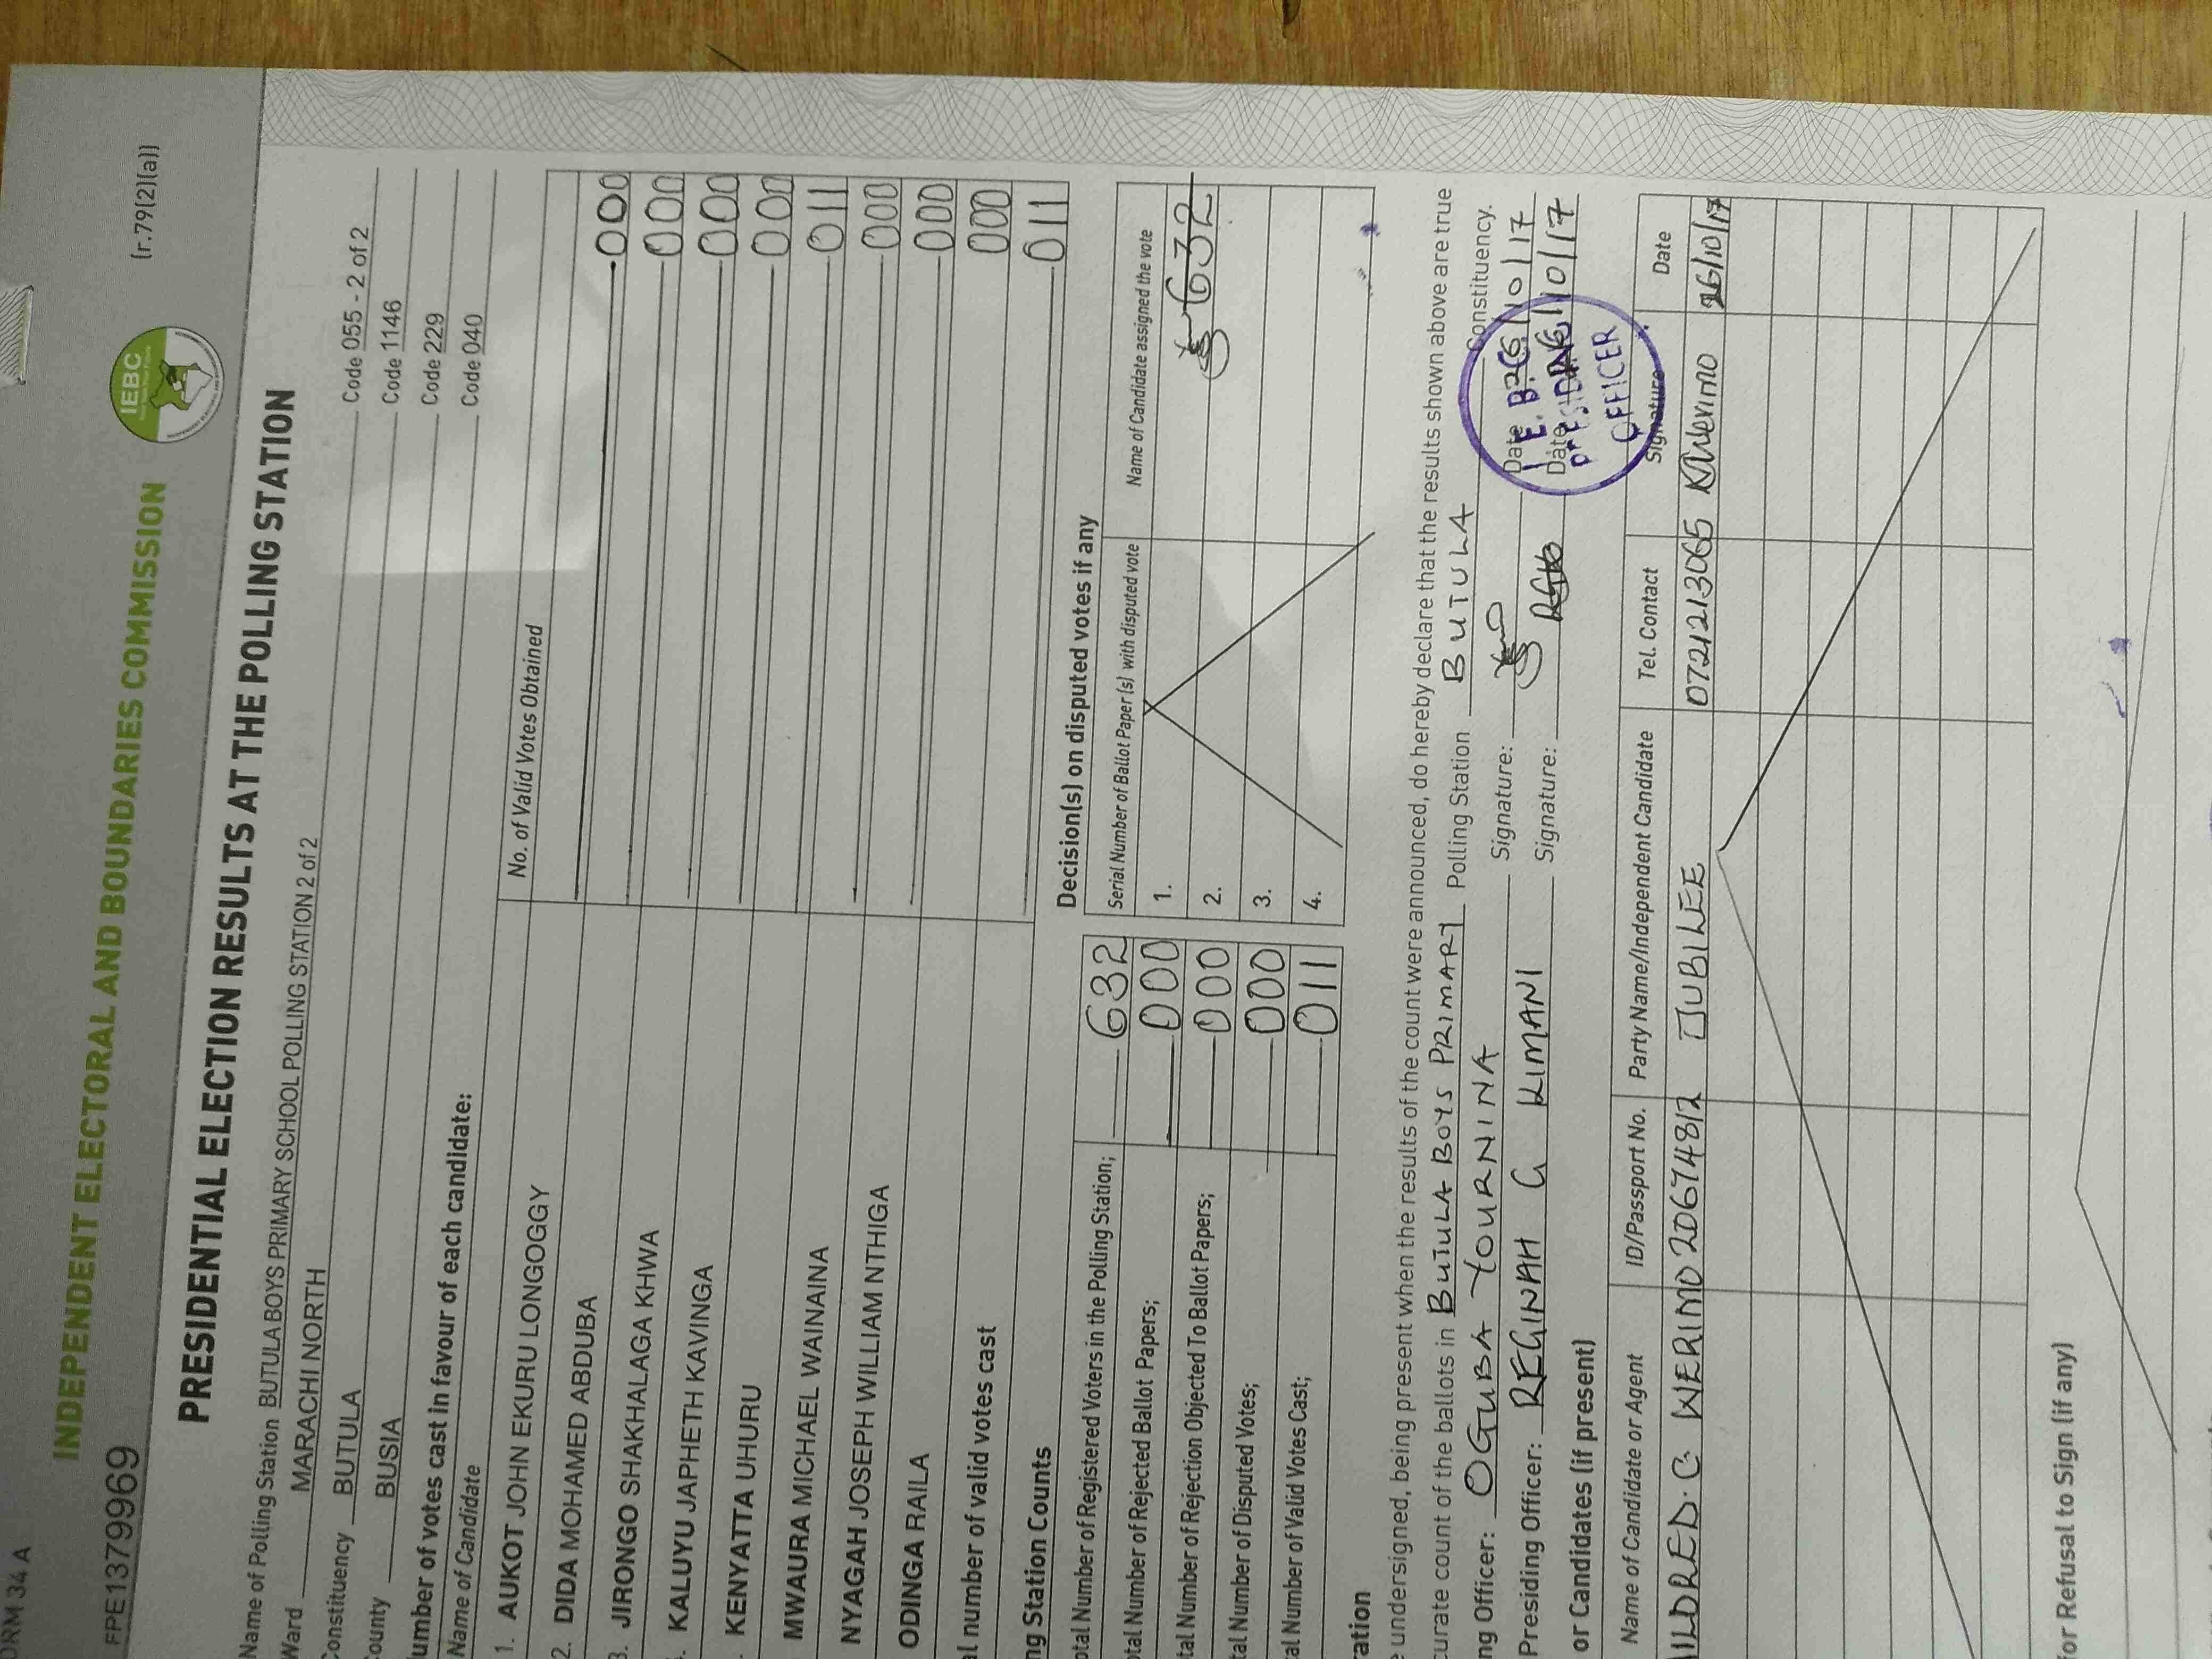 ORM 34 A
(r.79(2)(a))
IEBC
INDEPENDENT ELECTORAL AND BOUNDARIES COMMISSION
FPE1379969
PRESIDENTIAL ELECTION RESULTS AT THE POLLING STATION
Name of Polling Station BUTULA BOYS PRIMARY SCHOOL POLLING STATION 2 of 2 Code 055 - 2 of 2
Ward MARACHI NORTH Code 1146
Constituency BUTULA Code 229
County BUSIA Code 040
umber of votes cast in favour of each candidate:
Name of Candidate No. of Valid Votes Obtained
1. AUKOT JOHN EKURU LONGOGGY 000
2. DIDA MOHAMED ABDUBA 000
3. JIRONGO SHAKHALAGA KHWA 000
. KALUYU JAPHETH KAVINGA 000
. KENYATTA UHURU 011
MWAURA MICHAEL WAINAINA 000
NYAGAH JOSEPH WILLIAM NTHIGA 000
ODINGA RAILA 000
al number of valid votes cast 011
ng Station Counts
otal Number of Registered Voters in the Polling Station; 632
otal Number of Rejected Ballot Papers; 000
tal Number of Rejection Objected To Ballot Papers; 000
tal Number of Disputed Votes; 000
al Number of Valid Votes Cast; 011
Decision(s) on disputed votes if any
Serial Number of Ballot Paper (s) with disputed vote Name of Candidate assigned the vote
1. 632
2.
3.
4.
ation
e undersigned, being present when the results of the count were announced, do hereby declare that the results shown above are true
curate count of the ballots in BUTULA BOYS PRIMARY Polling Station BUTULA Constituency.
ng Officer: OGUBA YOURNINA Signature: Date 26/10/17
Presiding Officer: REGINAH G KIMANI Signature: Date 26/10/17
I.E.B.C
PRESIDING
OFFICER
or Candidates (if present)
Name of Candidate or Agent ID/Passport No. Party Name/Independent Candidate Tel. Contact Signature Date
ILDRED. C. WERIMO 20674812 JUBILEE 0721213065 Werimo 26/10/17
for Refusal to Sign (if any)